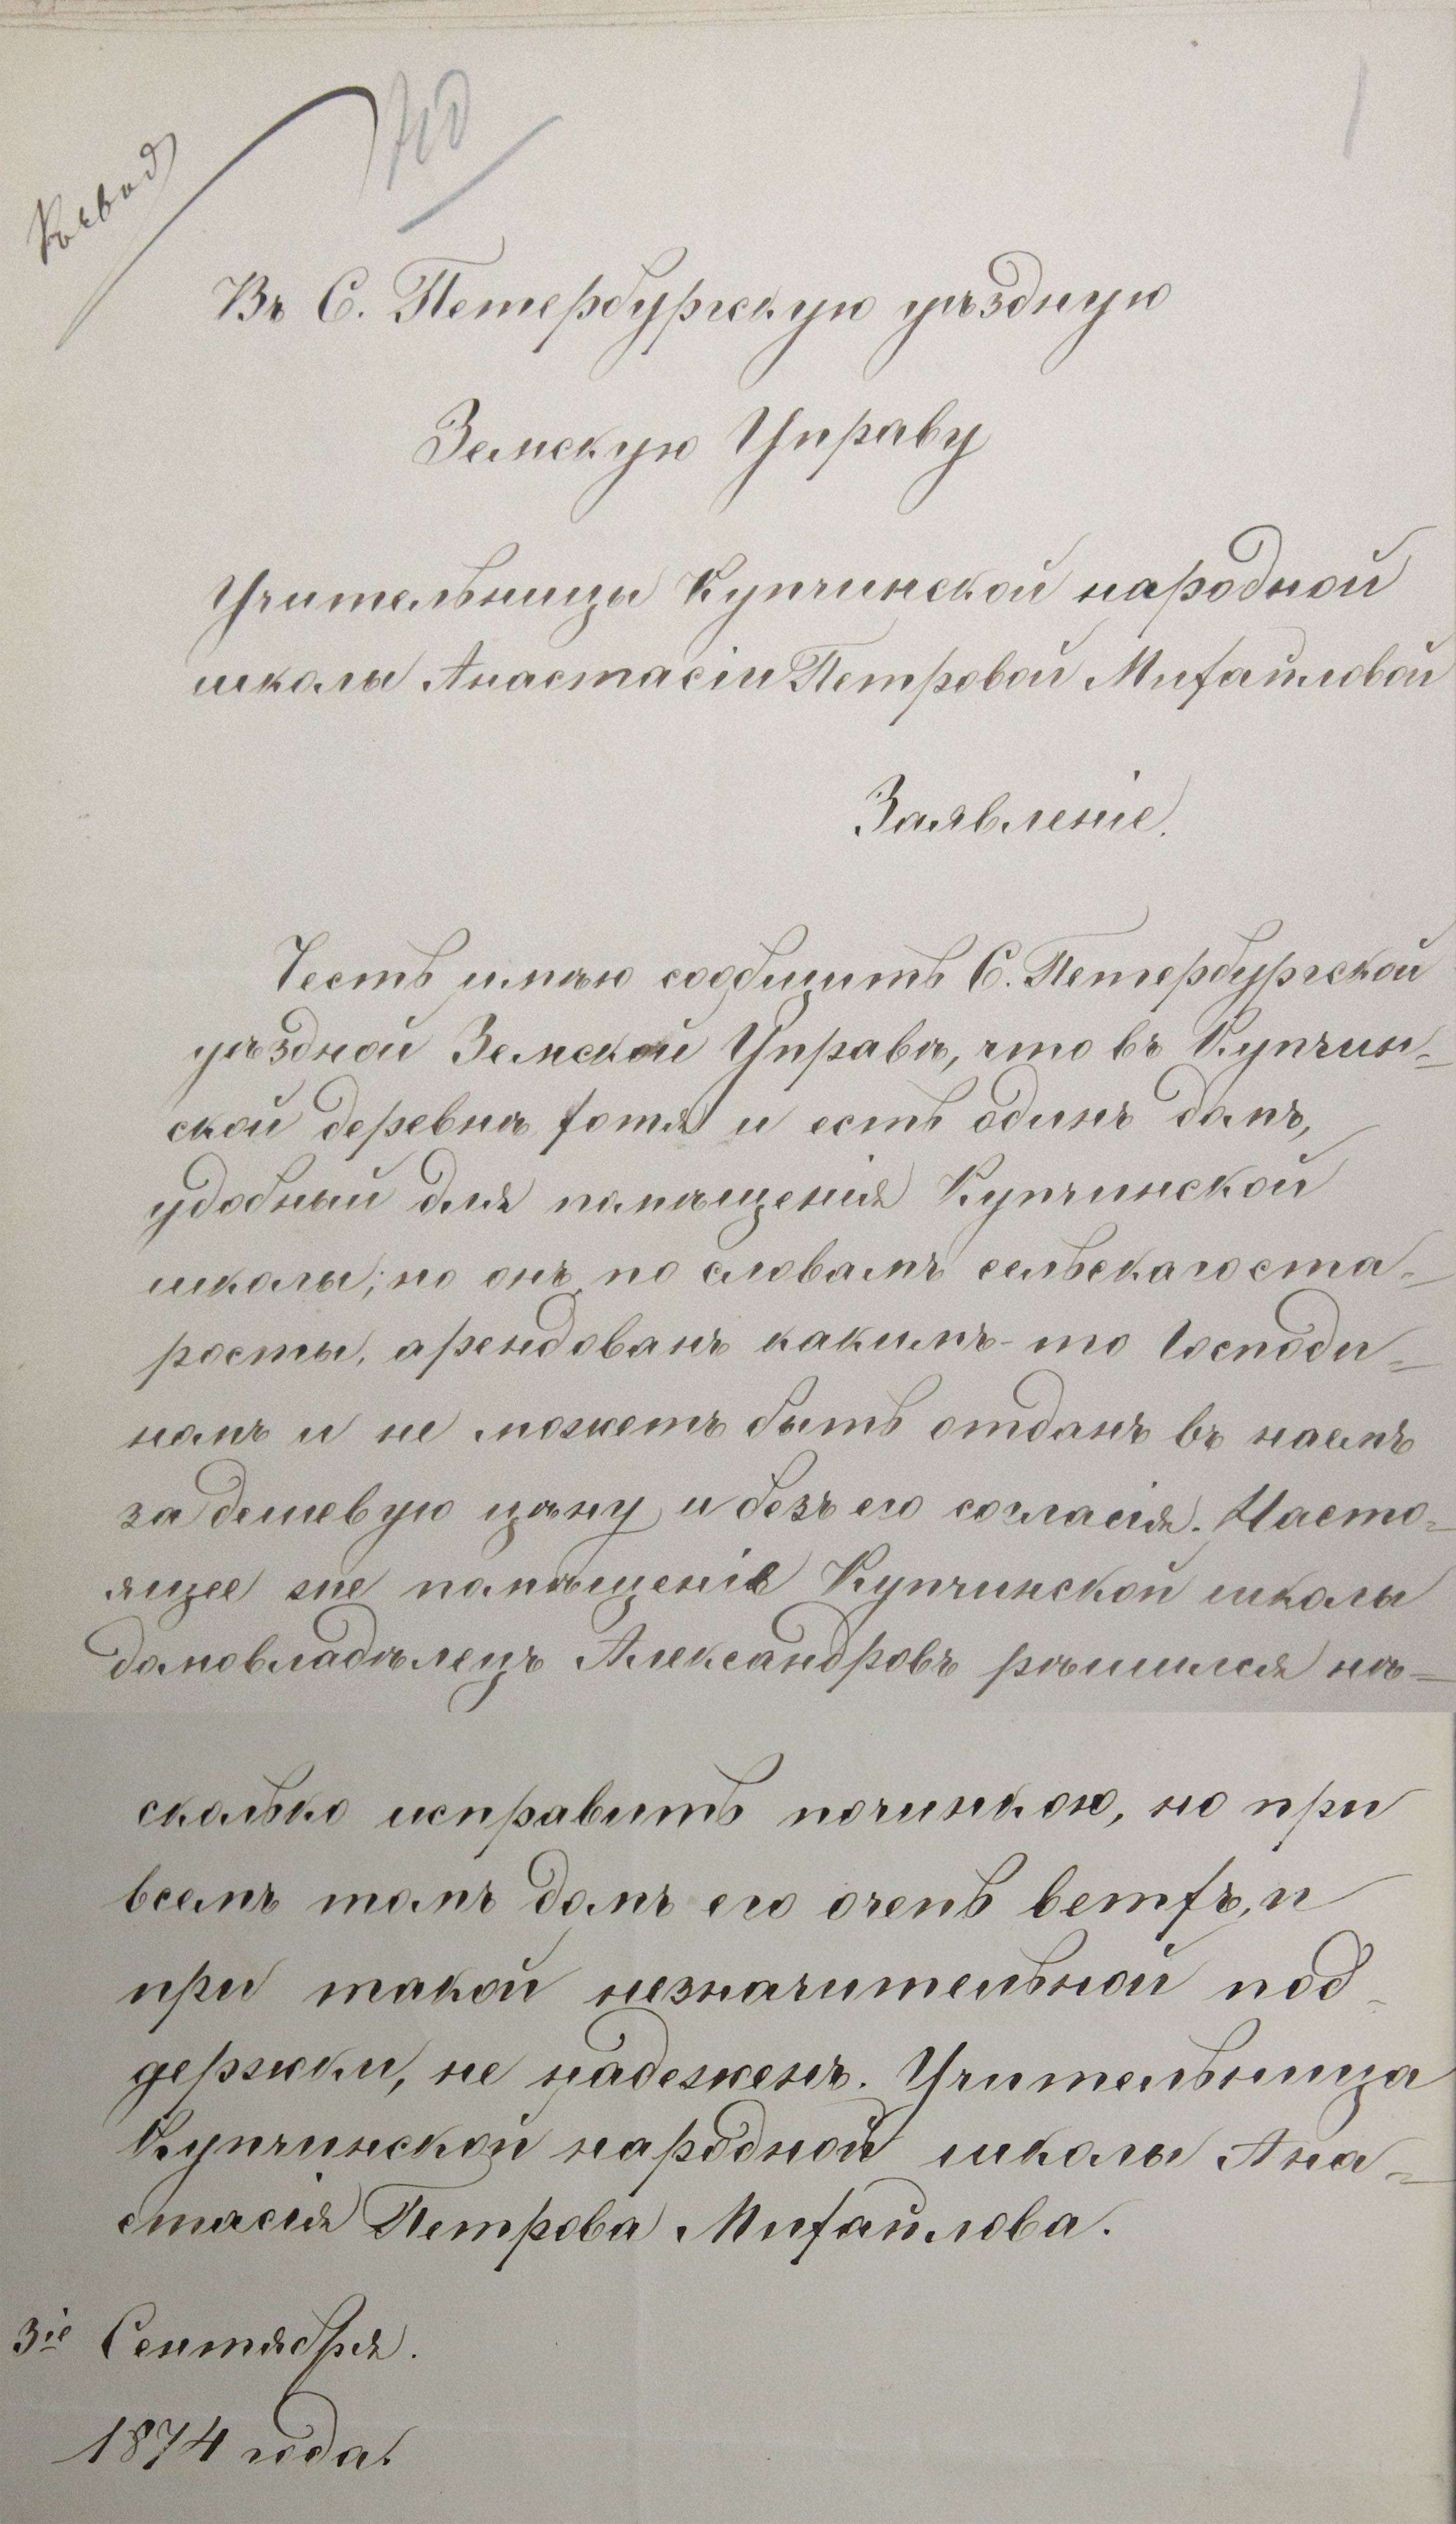 Въ С. Петербургскую уѣздную
Земскую Управу
Учительницы Купчинской народной
школы Анастасіи Петровой Михайловой
Заявленіе.
Честь имѣю сообщить С. Петербургской
уѣздной Земской Управѣ, что въ Купчин=
ской деревнѣ хотя и есть одинъ домъ,
удобный для помѣщенія Купчинской
школы; но онъ, по словамъ сельскаго ста=
росты, арендованъ какимъ-то Господи=
номъ и не можетъ быть отданъ въ наемъ
за дешевую цѣну и безъ его согласія. Насто=
ящее же помѣщеніе Купчинской школы
домовладѣлецъ Александровъ рѣшился нѣ=
сколько исправить починкою, но при
всемъ томъ домъ его очень ветхъ, и
при такой незначительной под=
держки, не надеженъ. Учительница
Купчинской народной школы Ана=
стасія Петрова Михайлова.
3іе Сентября.
1874 года.